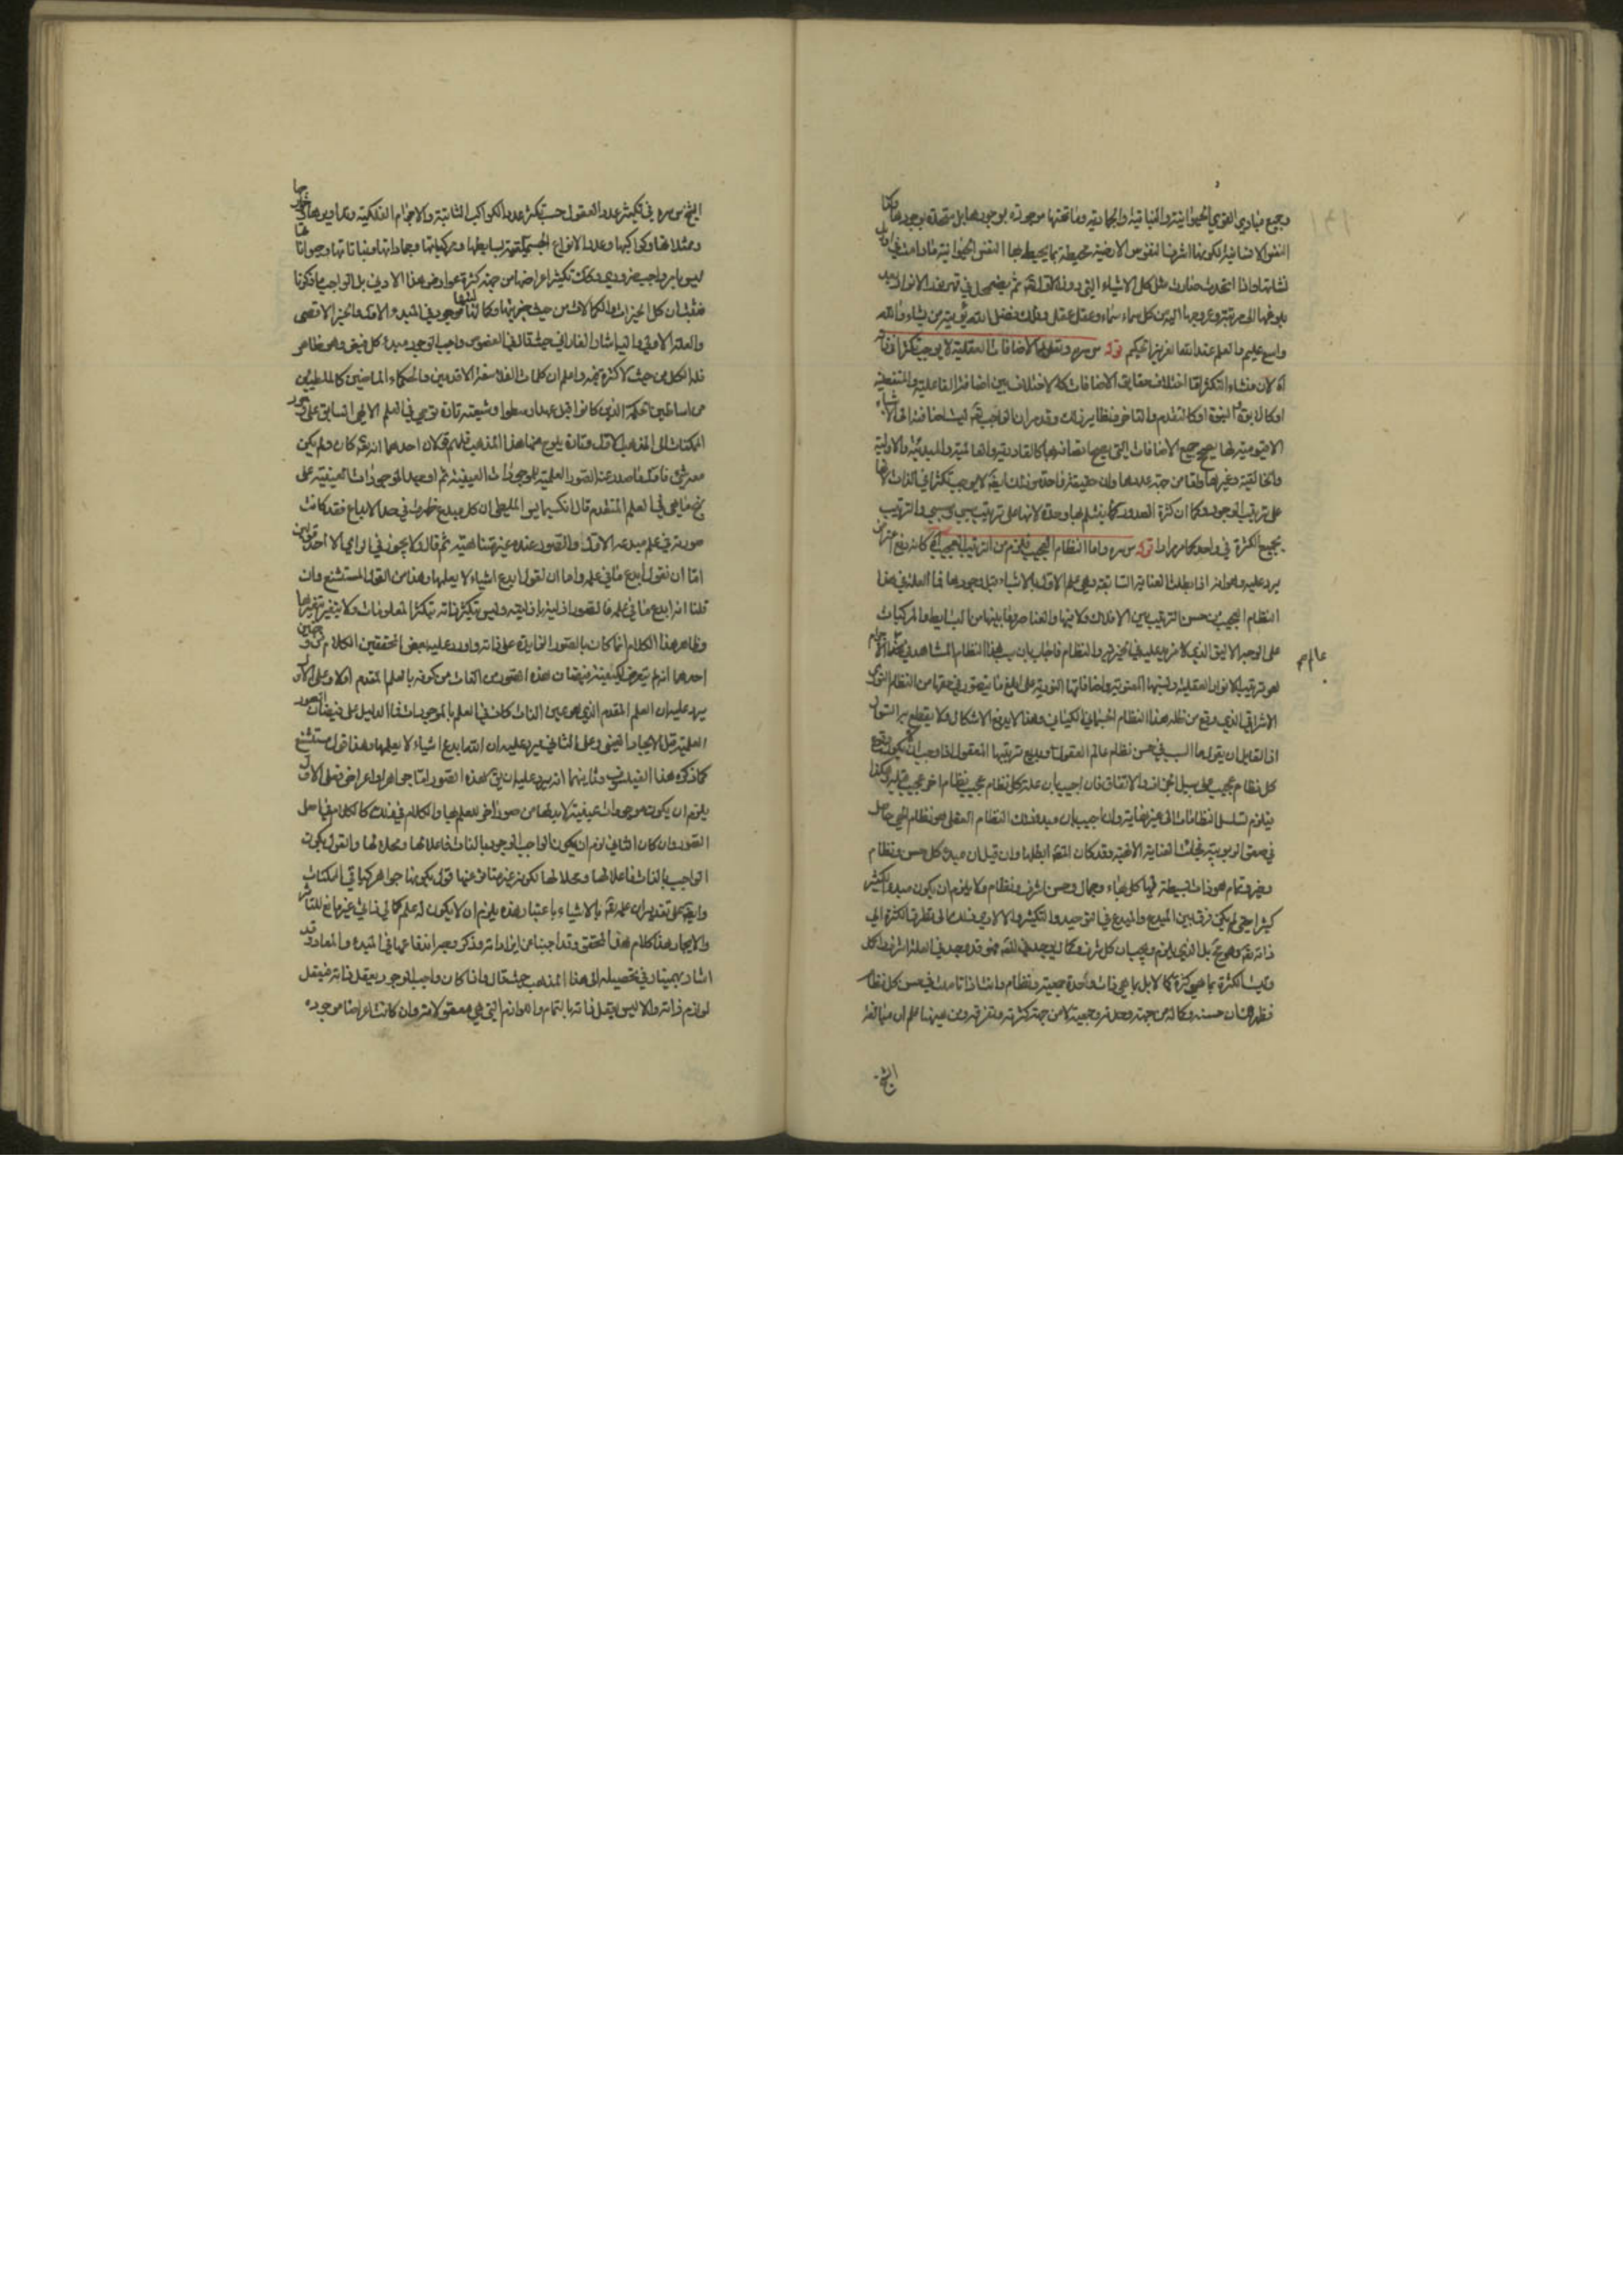 وجميع مبادي القوي الحيوانية والنباتية والجمادية وما تحتها موجودة بوجودها بل متحدة بوجودها وكذا
النفس الانسانية لكونها اشرف النفوس الارضية محيطة بما يحيط بها النفس الحيوانية مادامت في
نشأتها واذا اتحدت صارت مثل كل الاشياء التي دونه ثم يضمحل في قهر هذه الانوار بعد
بلوغها الى مرتبة وعروجها اليه من كل سماء سماء وعقل عقل وذلك فضل الله يؤتيه من يشاء والله
واسع عليم والعلم عند الله العزيز الحكيم قوله س سره وتعلم ان الاضافات العقلية لا يوجب تكثرا في ذاته
آه لان منشاء التكثر اما اختلاف حقايق الاضافات كالاختلاف بين اضافة الفاعلية والمنفعلية
او كالابوة والبنوة او كالتقدم والتاخر ونظاير ذلك وقد مر ان الواجب تعه ليست اضافته الى الاشياء
الا قيومية لها يصحح جميع الاضافات التي يصح اتصافه بها كالقادرية والعالمية والمبدئية والاولية
والخالقية وغيرها واما من جهة عددها وان حقيقة واحدة من ذلك ايضا لا يوجب تكثرا في الذات لانها
على ترتيب الوجود وكما ان كثرة الصدور كانت يشلم بها وحدة لانها على ترتيب سببي ومسببي والترتيب
يجمع الكثرة في واحد كما مر مرارا قوله س سره واما النظام العجيب فلزم من الترتيب العجيب آه كانه دفع اعتراض
يرد عليه وهو انه اذا بطلت العناية السابقة وهي علم الاول بالاشياء قبل وجودها فما العلة في هذا
النظام العجيب من حسن الترتيب بين الافلاك وكلا منها والعناصر وما بينها من البسايط والمركبات
على الوجه الاليق الذي لا مزيد عليه في الخيرية والنظام فاجاب بان سبب هذا النظام المشاهد في هذا العالم
عالم م
هو ترتيب الانوار العقلية ونسبها المعنوية واضافاتها النورية على ابلغ ما يتصور في حقها من النظام النوري
الاشراقي الذي وقع من ظله هذا النظام الجسماني الكياني وهذا لا يدفع الاشكال ولا ينقطع به السؤال
اذ لقايل ان يقول ما السبب في حسن نظام عالم العقول وبديع ترتيبها المعقول اذا وجب ان لا يكون وقوع
كل نظام عجيب على سبيل الجزاف والاتفاق فان اجيب بان علة كل نظام عجيب نظام اخر عجيب قبله وهكذا
فيلزم تسلسل النظامات الى غير نهاية وان اجيب بان مبدء ذلك النظام العقلي هو نظام الهي حاصل
في صقع الربوبية فجاءت العناية الالهية وقد كان المصه ابطلها وان قيل ان مبدئ كل حسن ونظام
وخير وتمام هو ذات بسيطة فيها كل بهاء وجمال وحسن وشرف ونظام ولا يلزم ان يكون مبدء الكثير
كثيرا حتى لم يكن فرق بين المبدع والمبدع في التوحيد والتكثير والا لادى ذلك الى تطرق الكثرة الى
ذاته تعه وهو مح بل الذي يلزم ويجب ان كل شرف وكمال يوجد في المعلول فقد وجد في العلة اشرف واكمل
وليست الكثرة بما هي كثرة كمالا بل بما هي ذات واحدة جمعية ونظام وانت اذا تاملت في حسن كل نظام
فظهر لك ان حسنه وكماله من جهة وحدته وجمعيته لا من جهة كثرته وتفرقه ومن هيهنا علم ان مبالغة
الشيخ
الشيخ س سره في تكثير عدد العقول حسب تكثر عدد الكواكب الثابتة والاجرام الفلكية وتداويرها وخوارجها
وممثلاتها وكواكبها وعدد الانواع الجسمية بسايطها ومركباتها وجماداتها ونباتاتها وحيواناتها
ليس بامر واجب ضروري وكانت تكثيرا عراضها من جهة كثرة عوارض هذا الادنى بل الواجب ما ذكرنا
فثبت ان كل الخيرات والكمالات من حيث خيريتها وكماليتها موجود في المبدء الاول والخير الاقصى
والعلة الاولى واليه اشار الفارابي حيث قال في الفصوص واجب الوجود مبدء كل فيض وهو ظاهر
فله الكل من حيث لا كثرة فيه واعلم ان كلمات الفلاسفة الاقدمين والحكماء الماضين كالملطيين
من اساطين الحكمة الذين كانوا قبل عهد ارسطو وشيعته تارة يوحي في العلم الالهي السابق على صدور
الممكنات الى المذهب الاول وتارة يلوح منها هذا المذهب فلهم قولان احدهما انه تعه كان ولم يكن
معه شئ فاول ما صدر عنه الصور العلمية للموجودات العينية ثم اوجد الموجودات العينية على
نهج ما هي في العلم المتقدم قال انكسيمايس الملطي ان كل مبدع ظهرت في حد الابداع فقد كانت
صورته في علم مبدعه الاول والصور عنده غير متناهية ثم قال ولا يجوز في الراي الا احد قولين
اما ان نقول ابدع ما في علمه واما ان نقول ابدع اشياء لا يعلمها وهذا من القول المستشنع وان
قلنا انه ابدع ما في علمه فالصور ازلية بازليته وليس يتكثر ذاته بتكثر المعلومات ولا يتغير بتغيرها
وظاهر هذا الكلام انما كان بالصور الزايدة على ذاته واورد عليه بعض المحققين الكلام من وجهين
احدهما انه لم يتعرض لكيفية فيضان هذه الصور من الذات من كونه بالعلم المقدم اولا وعلى الاول
يرد عليه ان العلم المقدم الذي هو عين الذات كان في العلم بالموجودات فما الدليل على فيضان الصور
العلمية قبل الايجاد العيني وعلى الثاني فيرد عليه ان الله ابدع اشياء لا يعلمها وهذا قول مستشنع
كما ذكره هذا الفيلسوف وثانيهما انه يرد عليه ان يق هذه الصور اما جواهر او اعراض فعلى الاول
يلزم ان يكون موجودات عينية لابد لها من صور اخرى للعلم بها والكلام في ذلك كالكلام في اصل
الصور وان كان الثاني لزم ان يكون الواجب الوجود بالذات فاعلا لها ومحلا لها والقول بكون
الواجب بالذات فاعلا لها ومحلا لها لكونه غير متاثر عنها قول بكونها جواهر كباقي الممكنات
وايضا على تقدير ان علمه تعه بالاشياء باعتبار هذه يلزم ان لا يكون له علم كمالي ذاتي غير مانع للتاثير
والايجاد هذا كلام هذا المحقق وقد اجبنا عن ايراداته وذكر وجه اندفاعها في المبدء والمعاد وقد
اشار بهمنيار في تحصيله الى هذا المذهب حيث قال واذا كان واجب الوجود يعقل ذاته فيعقل
لوازم ذاته والا ليس يعقل ذاته بالتمام واللوازم التي هي معقولاته وان كانت اعراضا موجودة